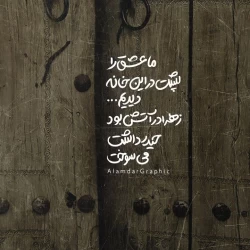 ما عشق را
پشت در این خانه
دیدیم...
زهرا در آتش بود
حیدر داشت
می سوخت
AlamdarGraphic